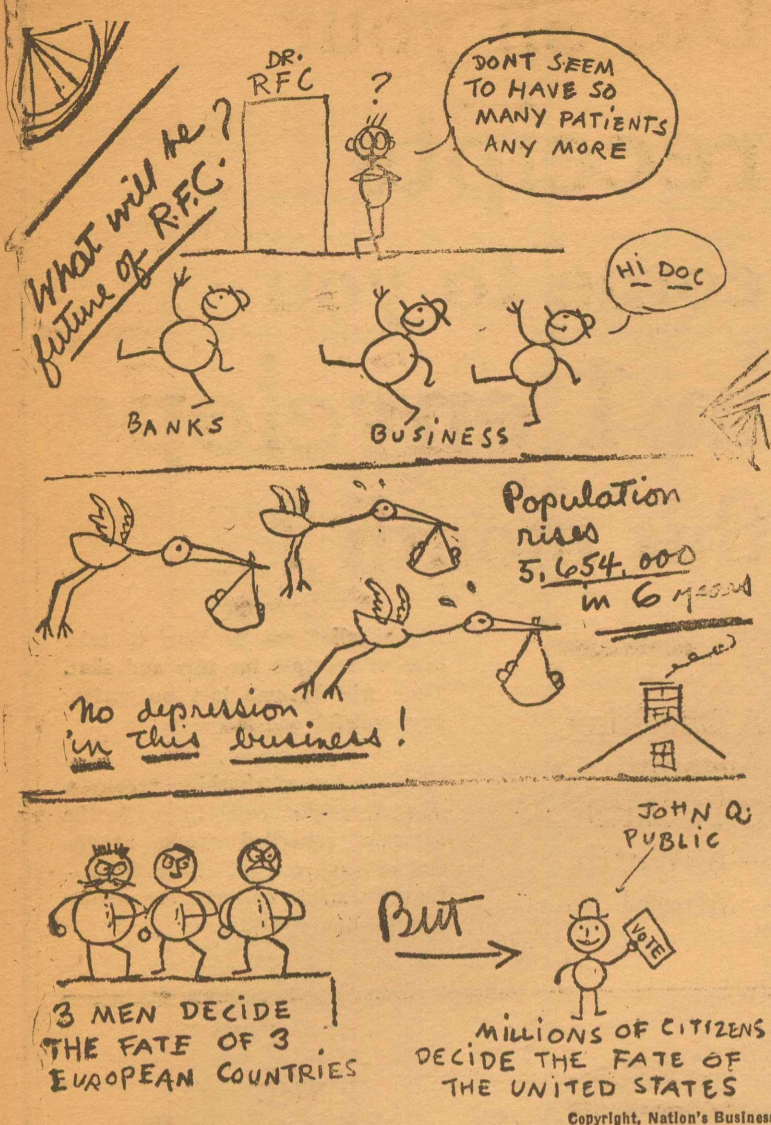 What will be
future of R.F.C.?
DR.
RFC
?
DONT SEEM
TO HAVE SO
MANY PATIENTS
ANY MORE
HI DOC
BANKS
BUSINESS
Population
rises
5,654,000
in 6 years
No depression
in this business!
3 MEN DECIDE
THE FATE OF 3
EUROPEAN COUNTRIES
But
JOHN Q.
PUBLIC
VOTE
MILLIONS OF CITIZENS
DECIDE THE FATE OF
THE UNITED STATES
Copyright, Nation's Business